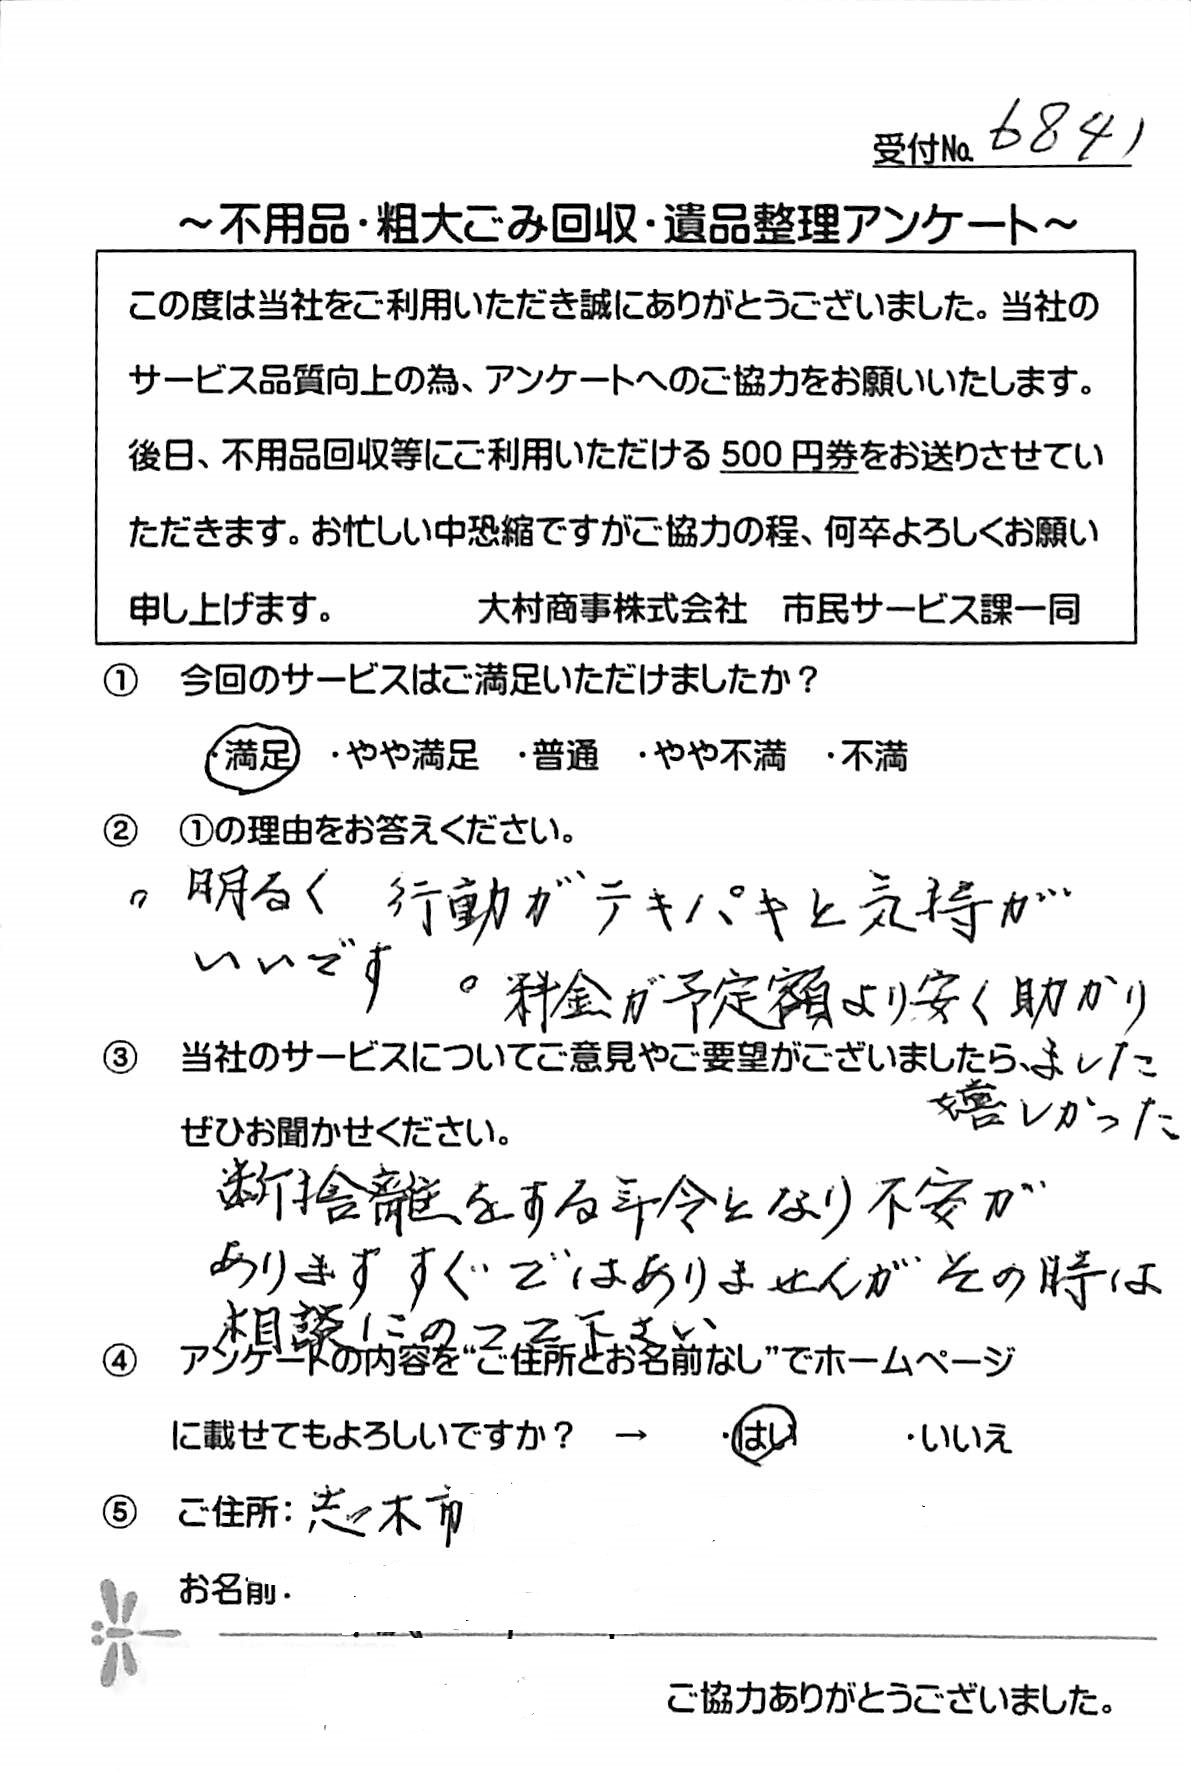 受付No. 6841
～不用品・粗大ごみ回収・遺品整理アンケート～
この度は当社をご利用いただき誠にありがとうございました。当社の
サービス品質向上の為、アンケートへのご協力をお願いいたします。
後日、不用品回収等にご利用いただける 500 円券をお送りさせてい
ただきます。お忙しい中恐縮ですがご協力の程、何卒よろしくお願い
申し上げます。 大村商事株式会社 市民サービス課一同
① 今回のサービスはご満足いただけましたか？
・満足 ・やや満足 ・普通 ・やや不満 ・不満
② ①の理由をお答えください。
。明るく 行動がテキパキと気持が
いいです 。料金が予定額より安く助かり
ました
嬉しかった
③ 当社のサービスについてご意見やご要望がございましたら、
ぜひお聞かせください。
断捨離をする年令となり不安が
あります すぐではありませんが その時は
相談にのって下さい
④ アンケートの内容を“ご住所とお名前なし”でホームページ
に載せてもよろしいですか？ → ・はい ・いいえ
⑤ ご住所：志木市
お名前
ご協力ありがとうございました。